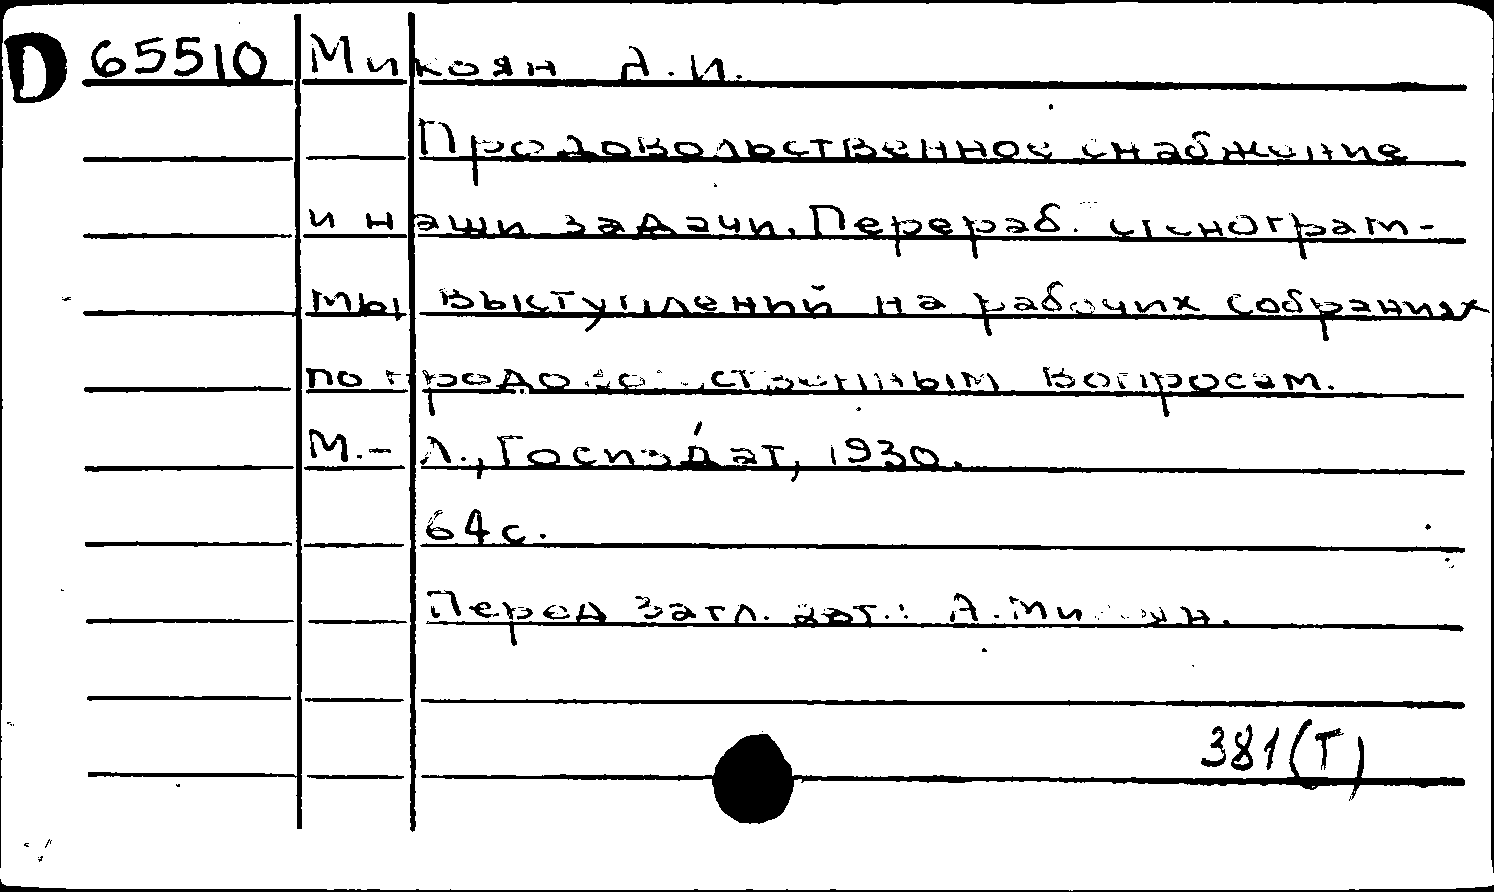 D 65510 Микоян А.И.
Продовольственное снабжение
и наши задачи. Перераб. стенограм-
мы выступлений на рабочих собраниях
по продовольственным вопросам.
М.-Л., Госиздат, 1930.
64 с.
Перед загл. авт.: А. Микоян.
381(Т)